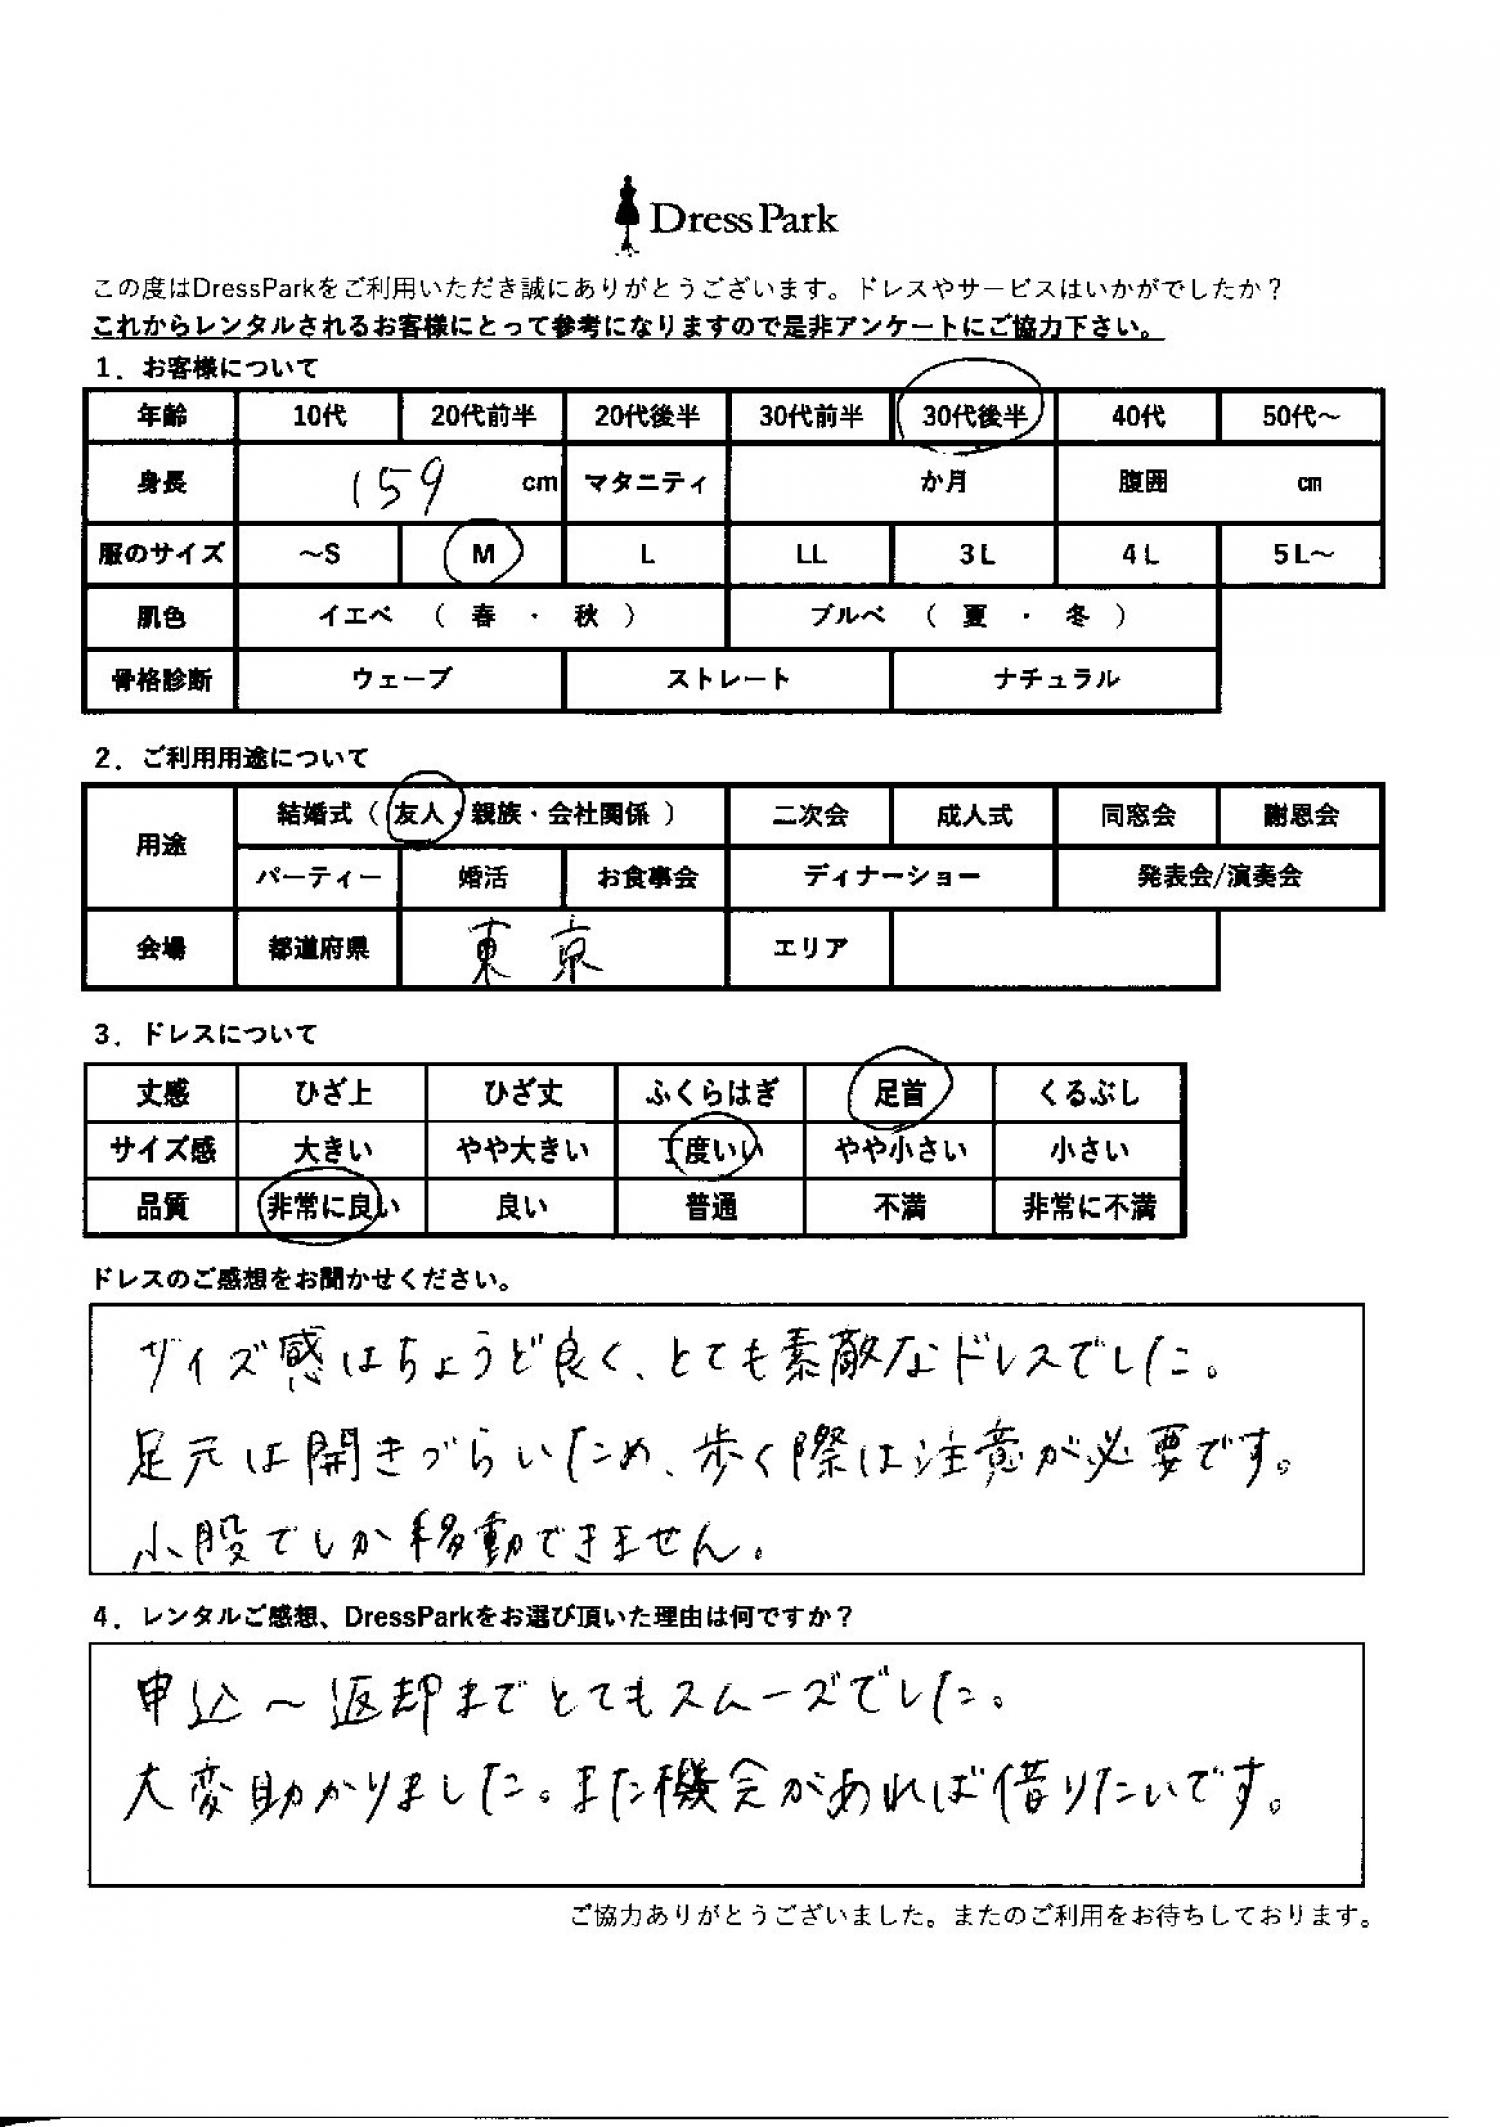 Dress Park
この度はDressParkをご利用いただき誠にありがとうございます。ドレスやサービスはいかがでしたか？
これからレンタルされるお客様にとって参考になりますので是非アンケートにご協力下さい。
1．お客様について
年齢 10代 20代前半 20代後半 30代前半 30代後半 40代 50代～
身長 159 cm マタニティ か月 腹囲 cm
服のサイズ ～S M L LL 3L 4L 5L～
肌色 イエベ （ 春 ・ 秋 ） ブルベ （ 夏 ・ 冬 ）
骨格診断 ウェーブ ストレート ナチュラル
2．ご利用用途について
用途 結婚式（ 友人・親族・会社関係 ） 二次会 成人式 同窓会 謝恩会
パーティー 婚活 お食事会 ディナーショー 発表会/演奏会
会場 都道府県 東京 エリア
3．ドレスについて
丈感 ひざ上 ひざ丈 ふくらはぎ 足首 くるぶし
サイズ感 大きい やや大きい 丁度いい やや小さい 小さい
品質 非常に良い 良い 普通 不満 非常に不満
ドレスのご感想をお聞かせください。
サイズ感はちょうど良く、とても素敵なドレスでした。
足元は開きづらいため、歩く際は注意が必要です。
小股でしか移動できません。
4．レンタルご感想、DressParkをお選び頂いた理由は何ですか？
申込～返却までとてもスムーズでした。
大変助かりました。また機会があれば借りたいです。
ご協力ありがとうございました。またのご利用をお待ちしております。